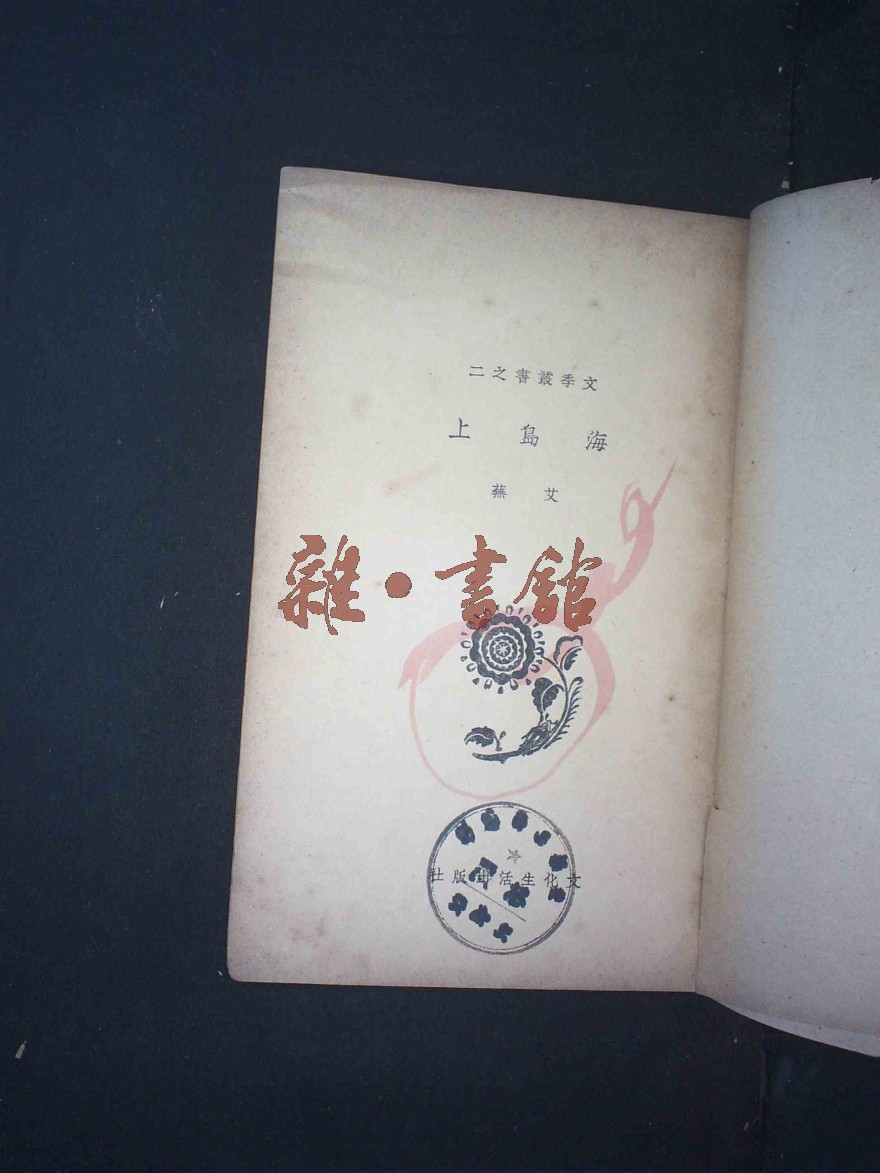 文季叢書之二
海島上
艾蕪
雜·書館
文化生活出版社